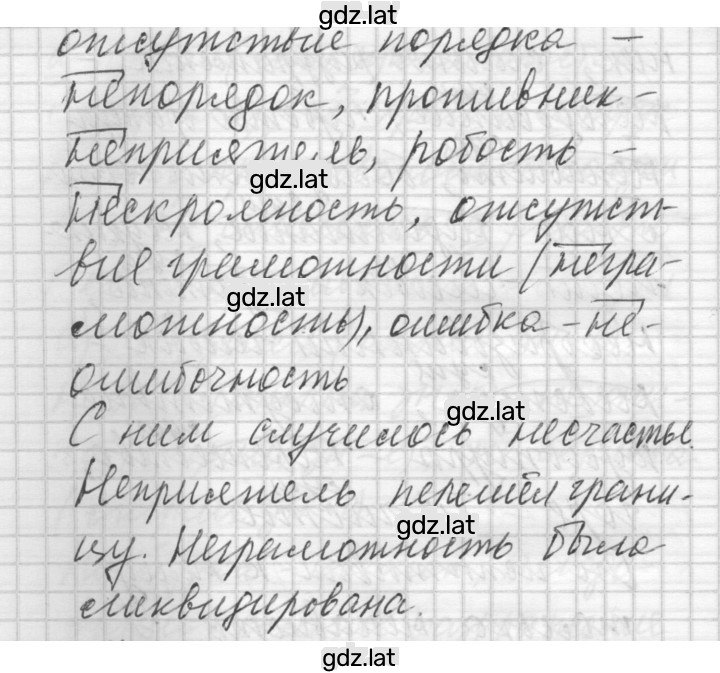 gdz.lat
отсутствие порядка –
непорядок, противник –
неприятель, робость –
gdz.lat
нескромность, отсутст-
вие грамотности (негра-
gdz.lat
мотность), ошибка – не-
ошибочность
gdz.lat
С ним случилось несчастье.
Неприятель перешёл грани-
gdz.lat
цу. Неграмотность была
ликвидирована.
gdz.lat